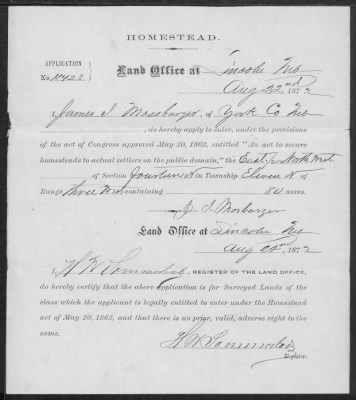 HOMESTEAD.
APPLICATION Land Office at Lincoln Neb
No. 11428 Aug 22nd 1872
I, James I Mossbarger, of York Co Neb
, do hereby apply to enter, under the provisions
of the act of Congress approved May 20, 1862, entitled "An act to secure
homesteads to actual settlers on the public domain," the East ½ North West
of Section fourteen in Township Eleven N of
Range three West containing 80 acres.
J. I Mosbarger
Land Office at Lincoln Neb
Aug 22nd 1872
I, H W, REGISTER OF THE LAND OFFICE,
do hereby certify that the above application is for Surveyed Lands of the
class which the applicant is legally entitled to enter under the Homestead
act of May 20, 1862, and that there is no prior, valid, adverse right to the
same.
H W
Register.